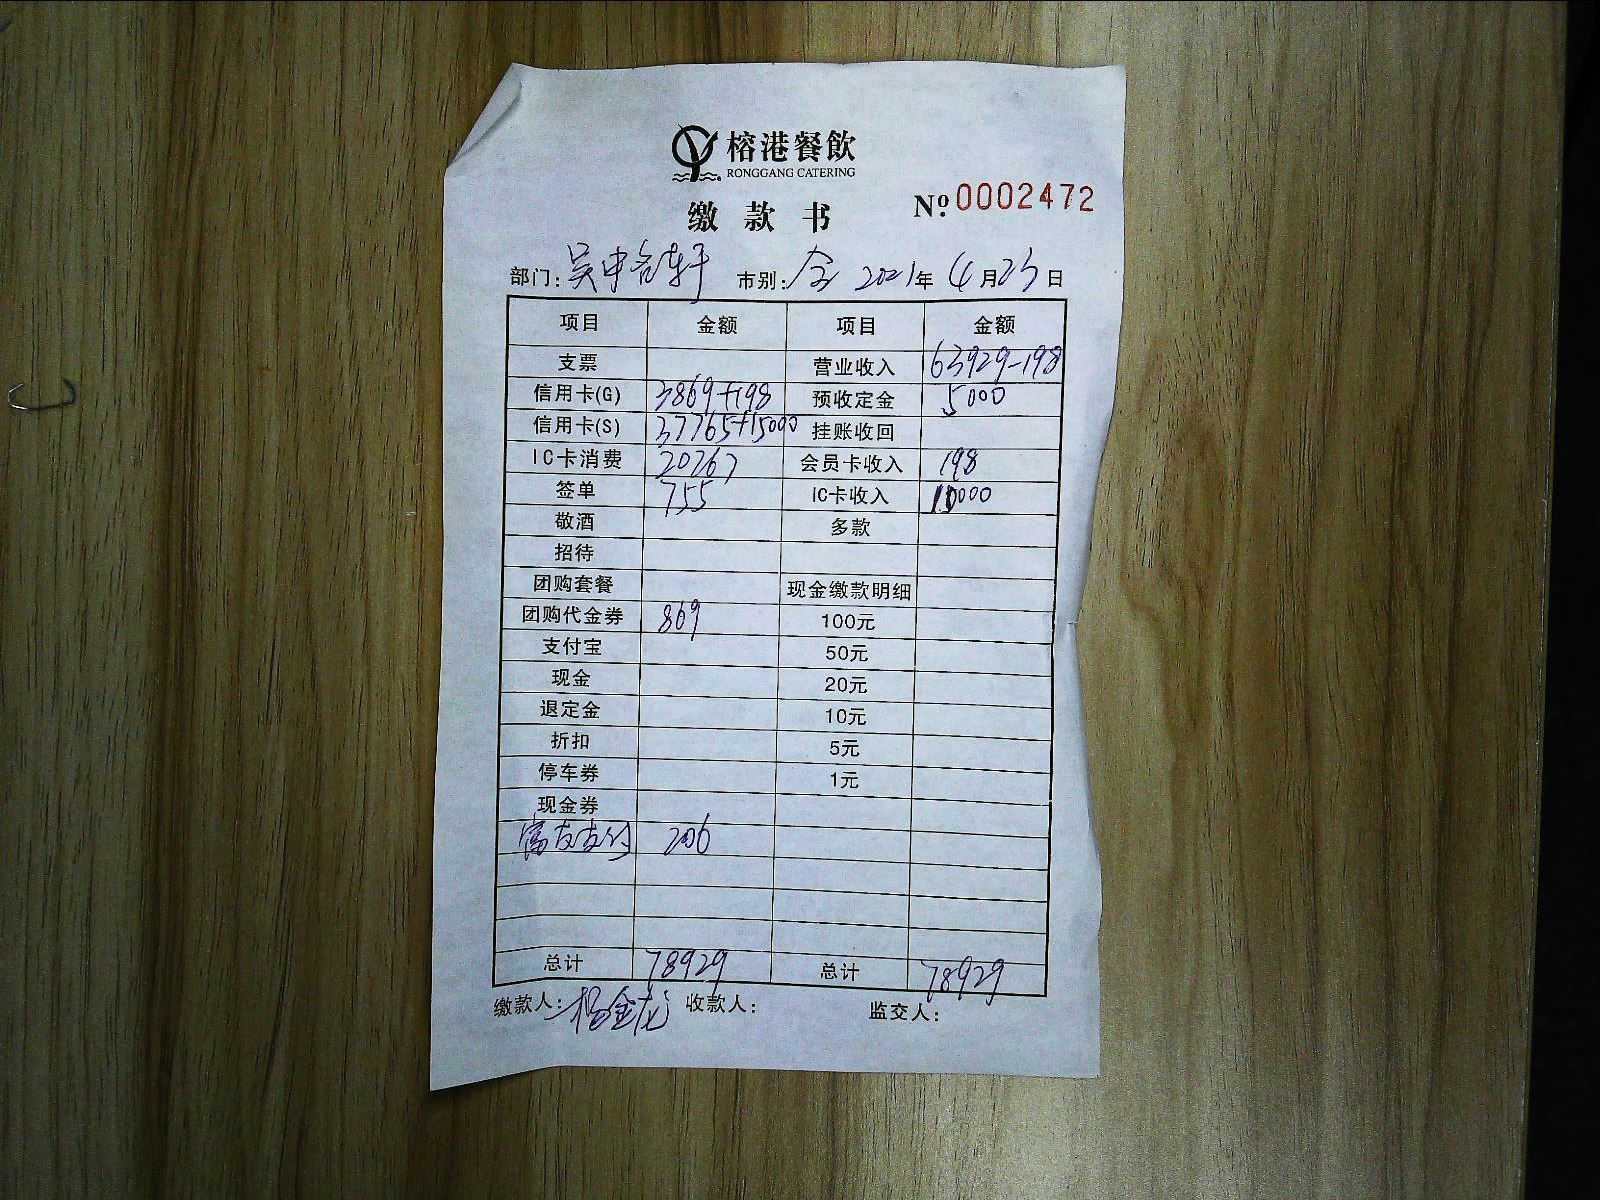 榕港餐飲
RONGGANG CATERING
缴款书
№ 0002472
部门：吴中名轩 市别：全 2021年4月23日
项目 金额 项目 金额
支票 营业收入 63929-198
信用卡(G) 3869+198 预收定金 5000
信用卡(S) 37765+15000 挂账收回
IC卡消费 20267 会员卡收入 198
签单 755 IC卡收入 10000
敬酒 多款
招待
团购套餐 现金缴款明细
团购代金券 869 100元
支付宝 50元
现金 20元
退定金 10元
折扣 5元
停车券 1元
现金券
富友支付 206
总计 78929 总计 78929
缴款人：杨金龙 收款人： 监交人：